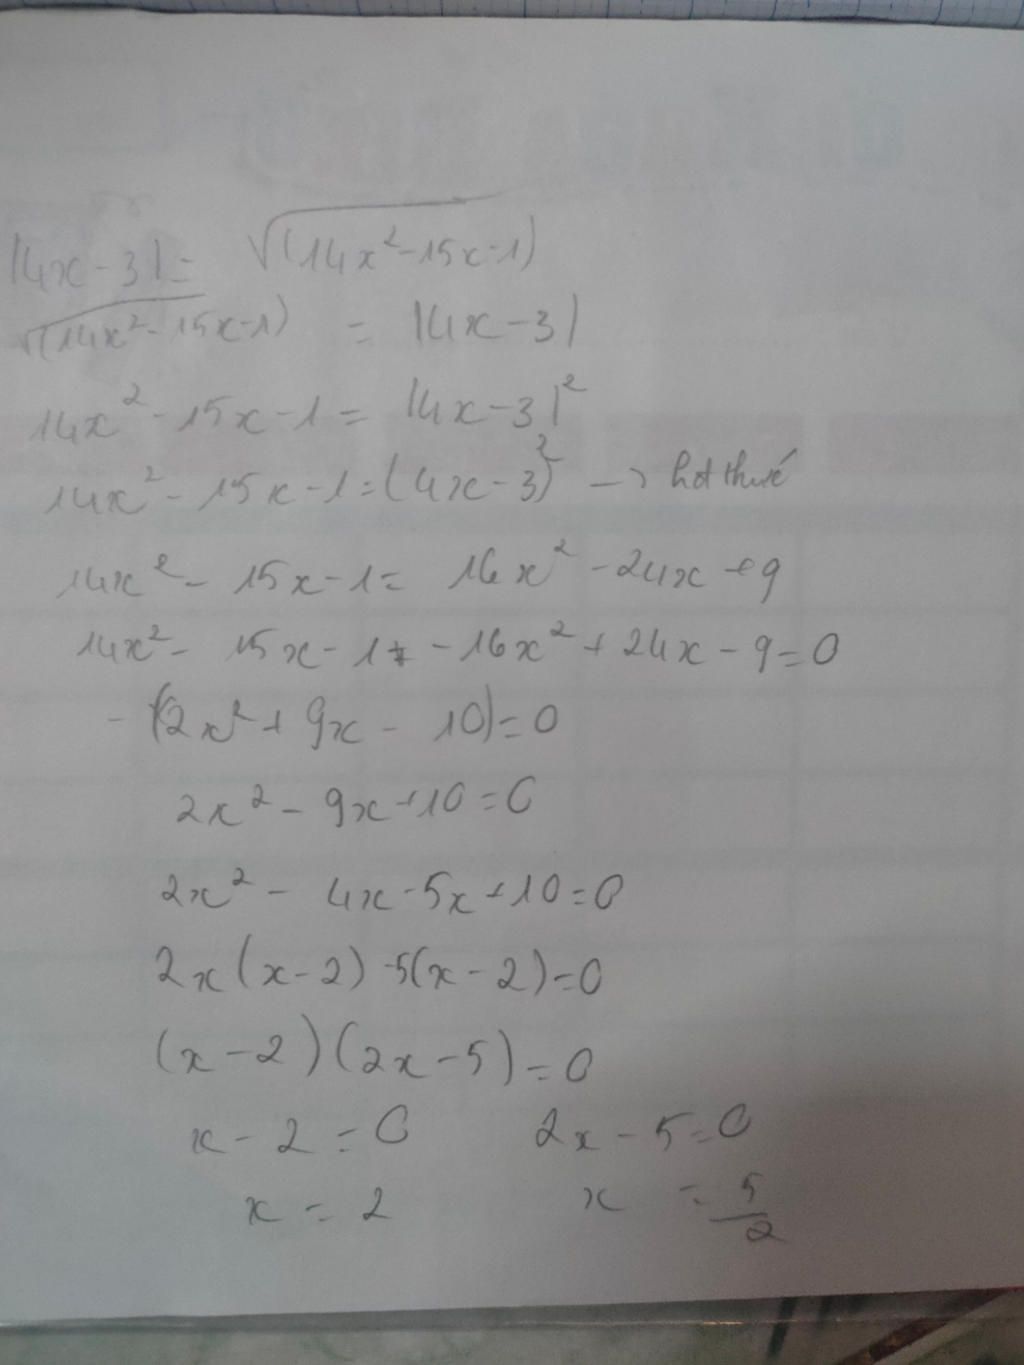 |4x-3| = √(14x²-15x-1)
√(14x²-15x-1) = |4x-3|
14x²-15x-1 = |4x-3|²
14x²-15x-1=(4x-3)² → hđt thức
14x²-15x-1= 16x²-24x+9
14x²-15x-1 -16x²+24x-9=0
-(2x²+9x-10)=0
2x²-9x+10=0
2x²-4x-5x+10=0
2x(x-2)-5(x-2)=0
(x-2)(2x-5)=0
x-2=0 2x-5=0
x=2 x=5/2